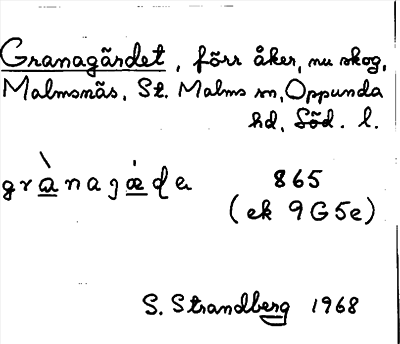 Granagärdet, förr åker, nu skog,
Malmsnäs, St. Malms sn, Oppunda
hd, Söd. l.
grànagä́ḍa 865
(ek 9G5e)
S. Strandberg 1968